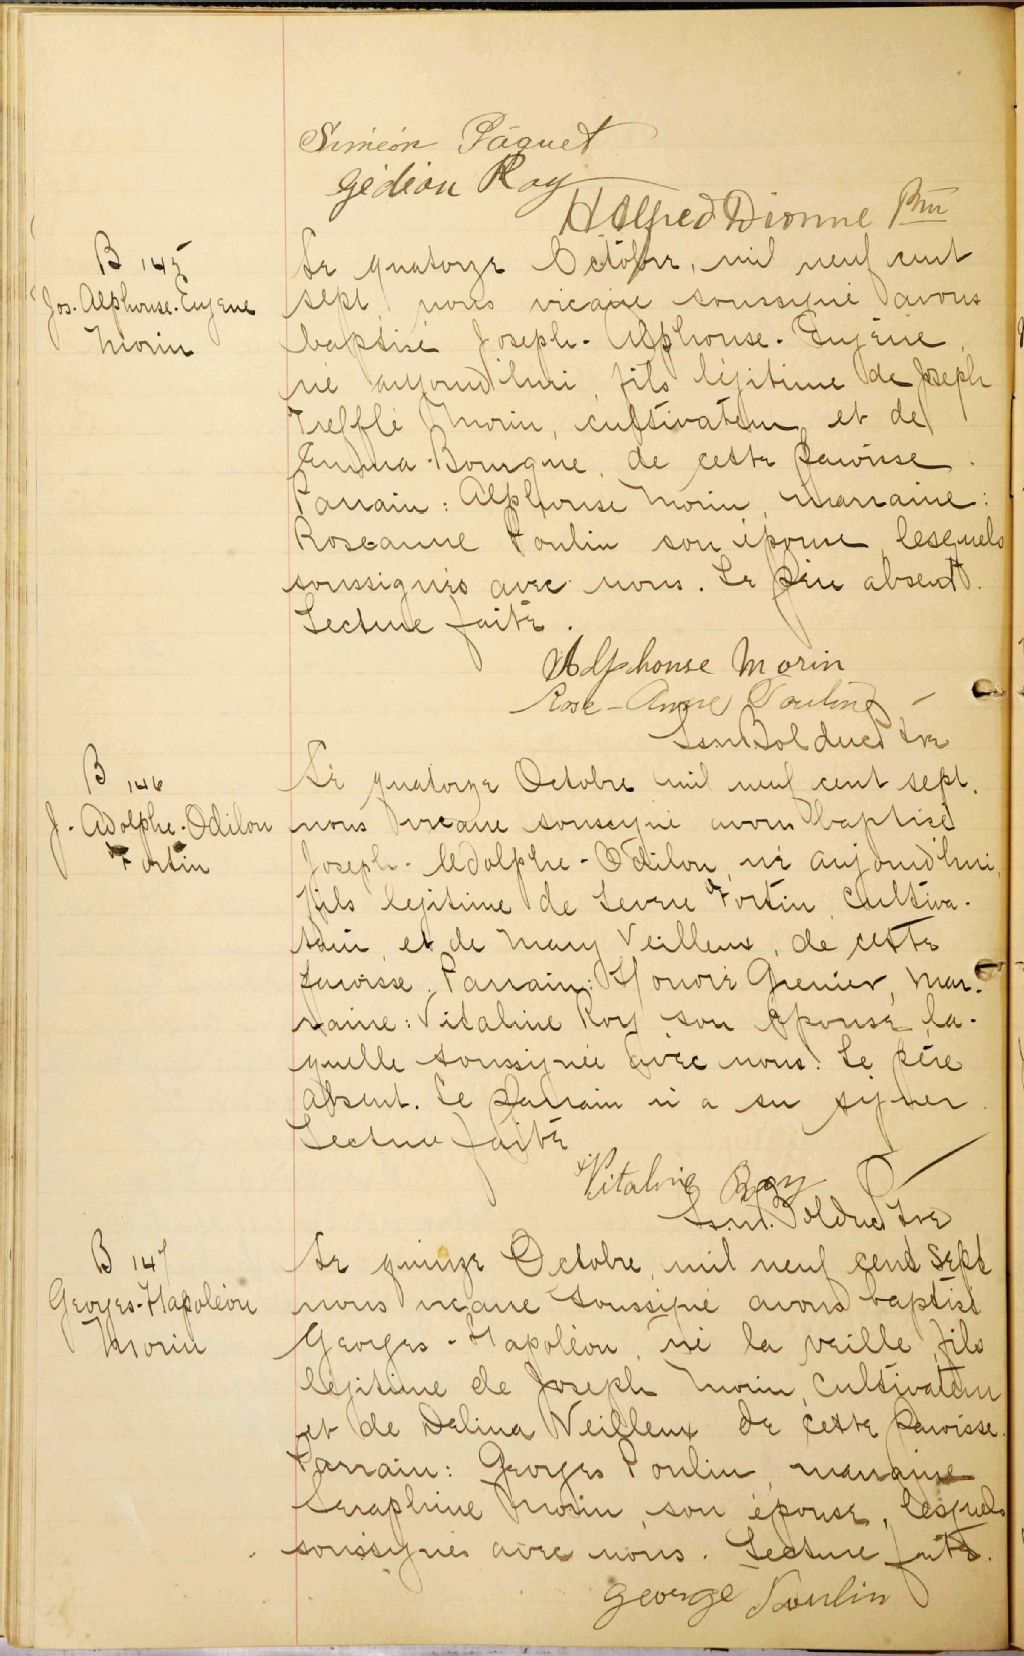 Siméon Pâquet
Gédéon Roy
H Alfred Dionne Ptre
B 145
Jos. Alphonse-Eugène
Morin
Le quatorze Octobre, mil neuf cent
sept nous vicaire soussigné avons
baptisé Joseph-Alphonse-Eugène,
né aujourd'hui, fils légitime de Joseph
Trefflé Morin, cultivateur, et de
Emma Bourque, de cette paroisse.
Parrain: Alphonse Morin, marraine:
Roseanne Poulin son épouse lesquels
soussignés avec nous. Le père absent.
Lecture faite.
Alphonse Morin
Rose-Anne Poulin
Bolduc Ptre
B 146
J-Adolphe-Odilon
Fortin
Le quatorze Octobre mil neuf cent sept,
nous vicaire soussigné avons baptisé
Joseph-Adolphe-Odilon, né aujourd'hui,
fils légitime de Fortin, cultiva-
teur, et de Mary Veilleux, de cette
paroisse. Parrain: Honoré Grenier, mar-
raine: Vitaline Roy son épouse, la-
quelle soussignée avec nous. Le père
absent. Le parrain n'a su signer.
Lecture faite
Vitaline Roy
Bolduc Ptre
B 147
Georges-Napoléon
Morin
Le quinze Octobre, mil neuf cent sept
nous vicaire soussigné avons baptisé
Georges-Napoléon, né la veille, fils
légitime de Joseph Morin, cultivateur
et de Delina Veilleux de cette paroisse.
Parrain: Georges Poulin, marraine
Seraphine Morin, son épouse, lesquels
soussignés avec nous. Lecture faite.
George Poulin